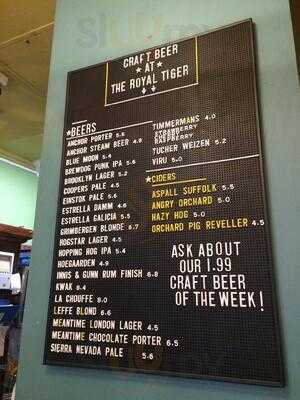 CRAFT BEER
★ AT ★
THE ROYAL TIGER
★BEERS
ANCHOR PORTER 5.6
ANCHOR STEAM BEER 4.8
BLUE MOON 5.4
BREWDOG PUNK IPA 5.6
BROOKLYN LAGER 5.2
COOPERS PALE 4.5
EINSTOK PALE 5.6
ESTRELLA DAMM 4.6
ESTRELLA GALICIA 5.5
GRIMBERGEN BLONDE 6.7
HOGSTAR LAGER 4.5
HOPPING HOG IPA 5.4
HOEGAARDEN 4.9
INNIS & GUNN RUM FINISH 6.8
KWAK 8.4
LA CHOUFFE 8.0
LEFFE BLOND 6.6
MEANTIME LONDON LAGER 4.5
MEANTIME CHOCOLATE PORTER 6.5
SIERRA NEVADA PALE 5.6
TIMMERMANS 4.0
STRAWBERRY
RASPBERRY
TUCHER WEIZEN 5.2
VIRU 5.0
★CIDERS
ASPALL SUFFOLK 5.5
ANGRY ORCHARD 5.0
HAZY HOG 5.0
ORCHARD PIG REVELLER 4.5
ASK ABOUT
OUR 1.99
CRAFT BEER
OF THE WEEK!